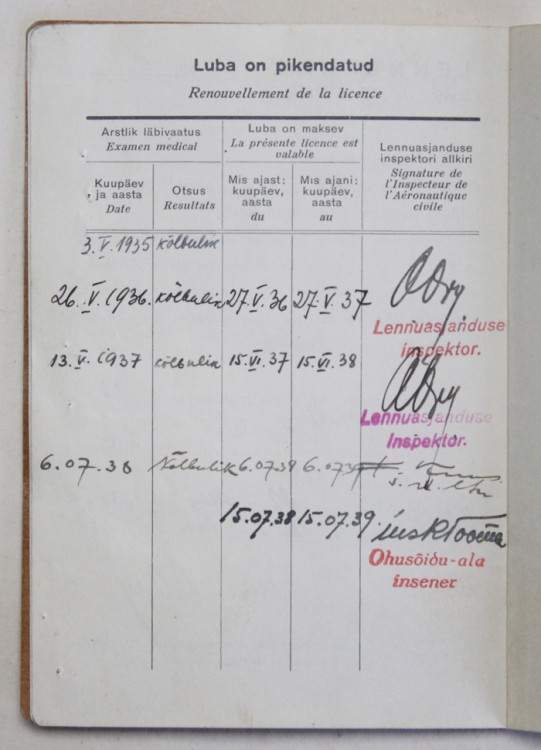 Luba on pikendatud
Renouvellement de la licence
Arstlik läbivaatus
Examen medical
Kuupäev
ja aasta
Date
Otsus
Resultats
Luba on maksev
La présente licence est
valable
Mis ajast:
kuupäev,
aasta
du
Mis ajani:
kuupäev,
aasta
au
Lennuasjanduse
inspektori allkiri
Signature de
l'Inspecteur de
l'Aéronautique
civile
3. V. 1935 kõlbulik
26. V. 1936. kõlbulik 27. V. 36 27. V. 37
Lennuasjanduse
inspektor.
13. V. 1937 kõlbulik 15. VI. 37 15. VI. 38
Lennuasjanduse
Inspektor.
6.07.38 Kõlbulik 6.07.38
15.07.38 15.07.39
Õhusõidu-ala
insener